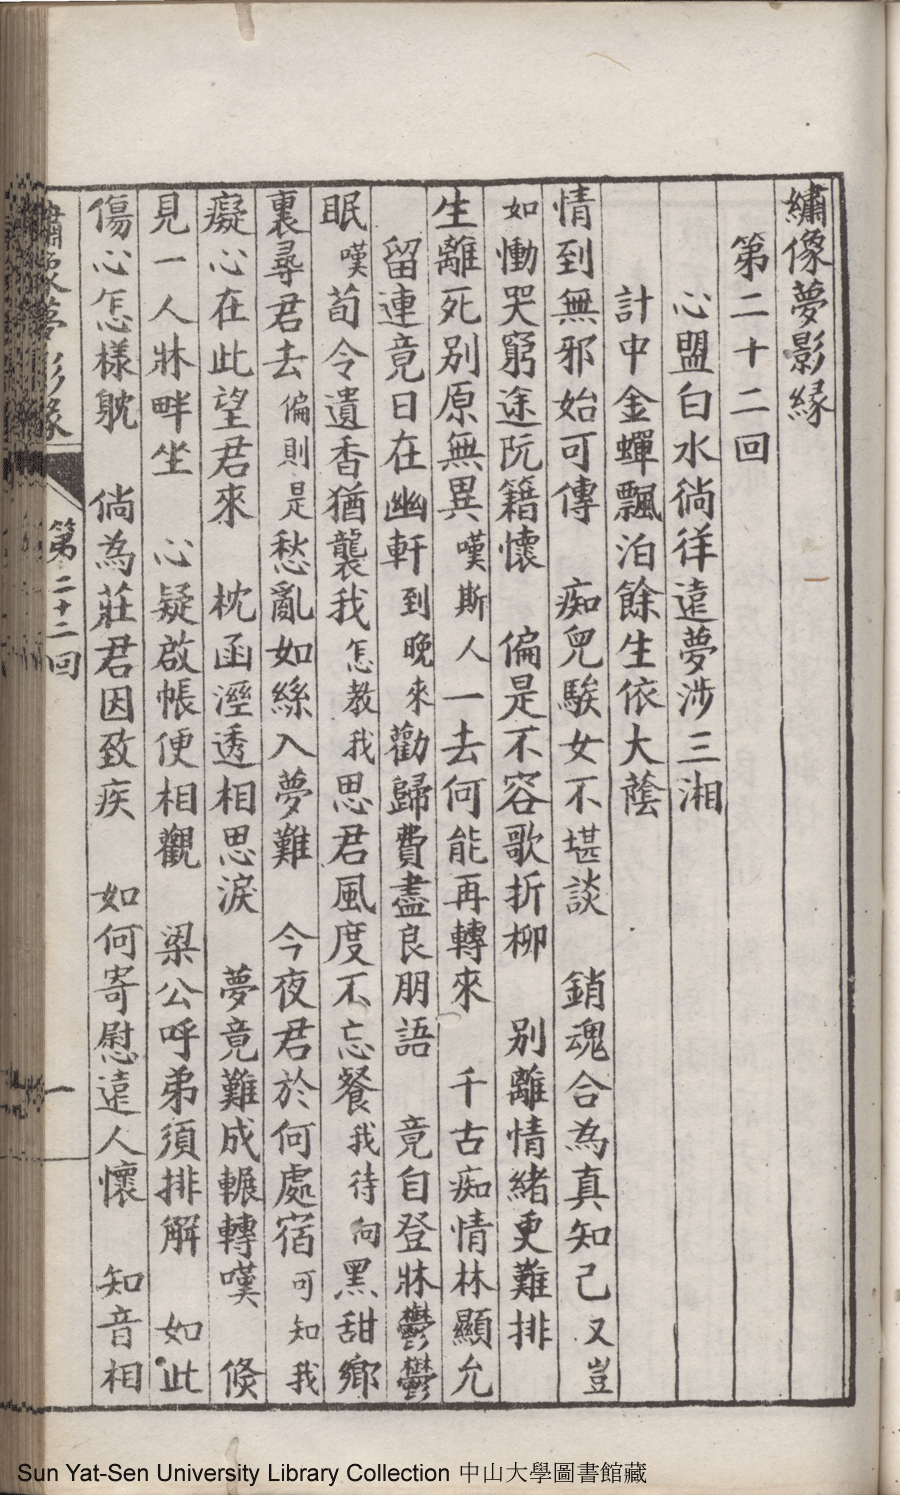 繡像夢影緣
第二十二回
心盟白水徜徉遠夢涉三湘
計中金蟬飄泊餘生依大蔭
情到無邪始可傳　痴兒騃女不堪談　銷魂合為真知己又豈
如慟哭窮途阮籍懷　偏是不容歌折柳　別離情緒更難排
生離死別原無異嘆斯人一去何能再轉來　千古痴情林顯允
留連竟日在幽軒到晚來勸歸費盡良朋語　竟自登牀鬱鬱
眠嘆荀令遺香猶襲我怎教我思君風度不忘餐我待向黑甜鄉
裏尋君去偏則是愁亂如絲入夢難　今夜君於何處宿可知我
癡心在此望君來　枕函溼透相思淚　夢竟難成輾轉嘆　倏
見一人牀畔坐　心疑啟帳便相觀　梁公呼弟須排解　如此
傷心怎樣躭　倘為莊君因致疾　如何寄慰遠人懷　知音相
繡像夢影緣　第二十二回　一
Sun Yat-Sen University Library Collection 中山大學圖書館藏